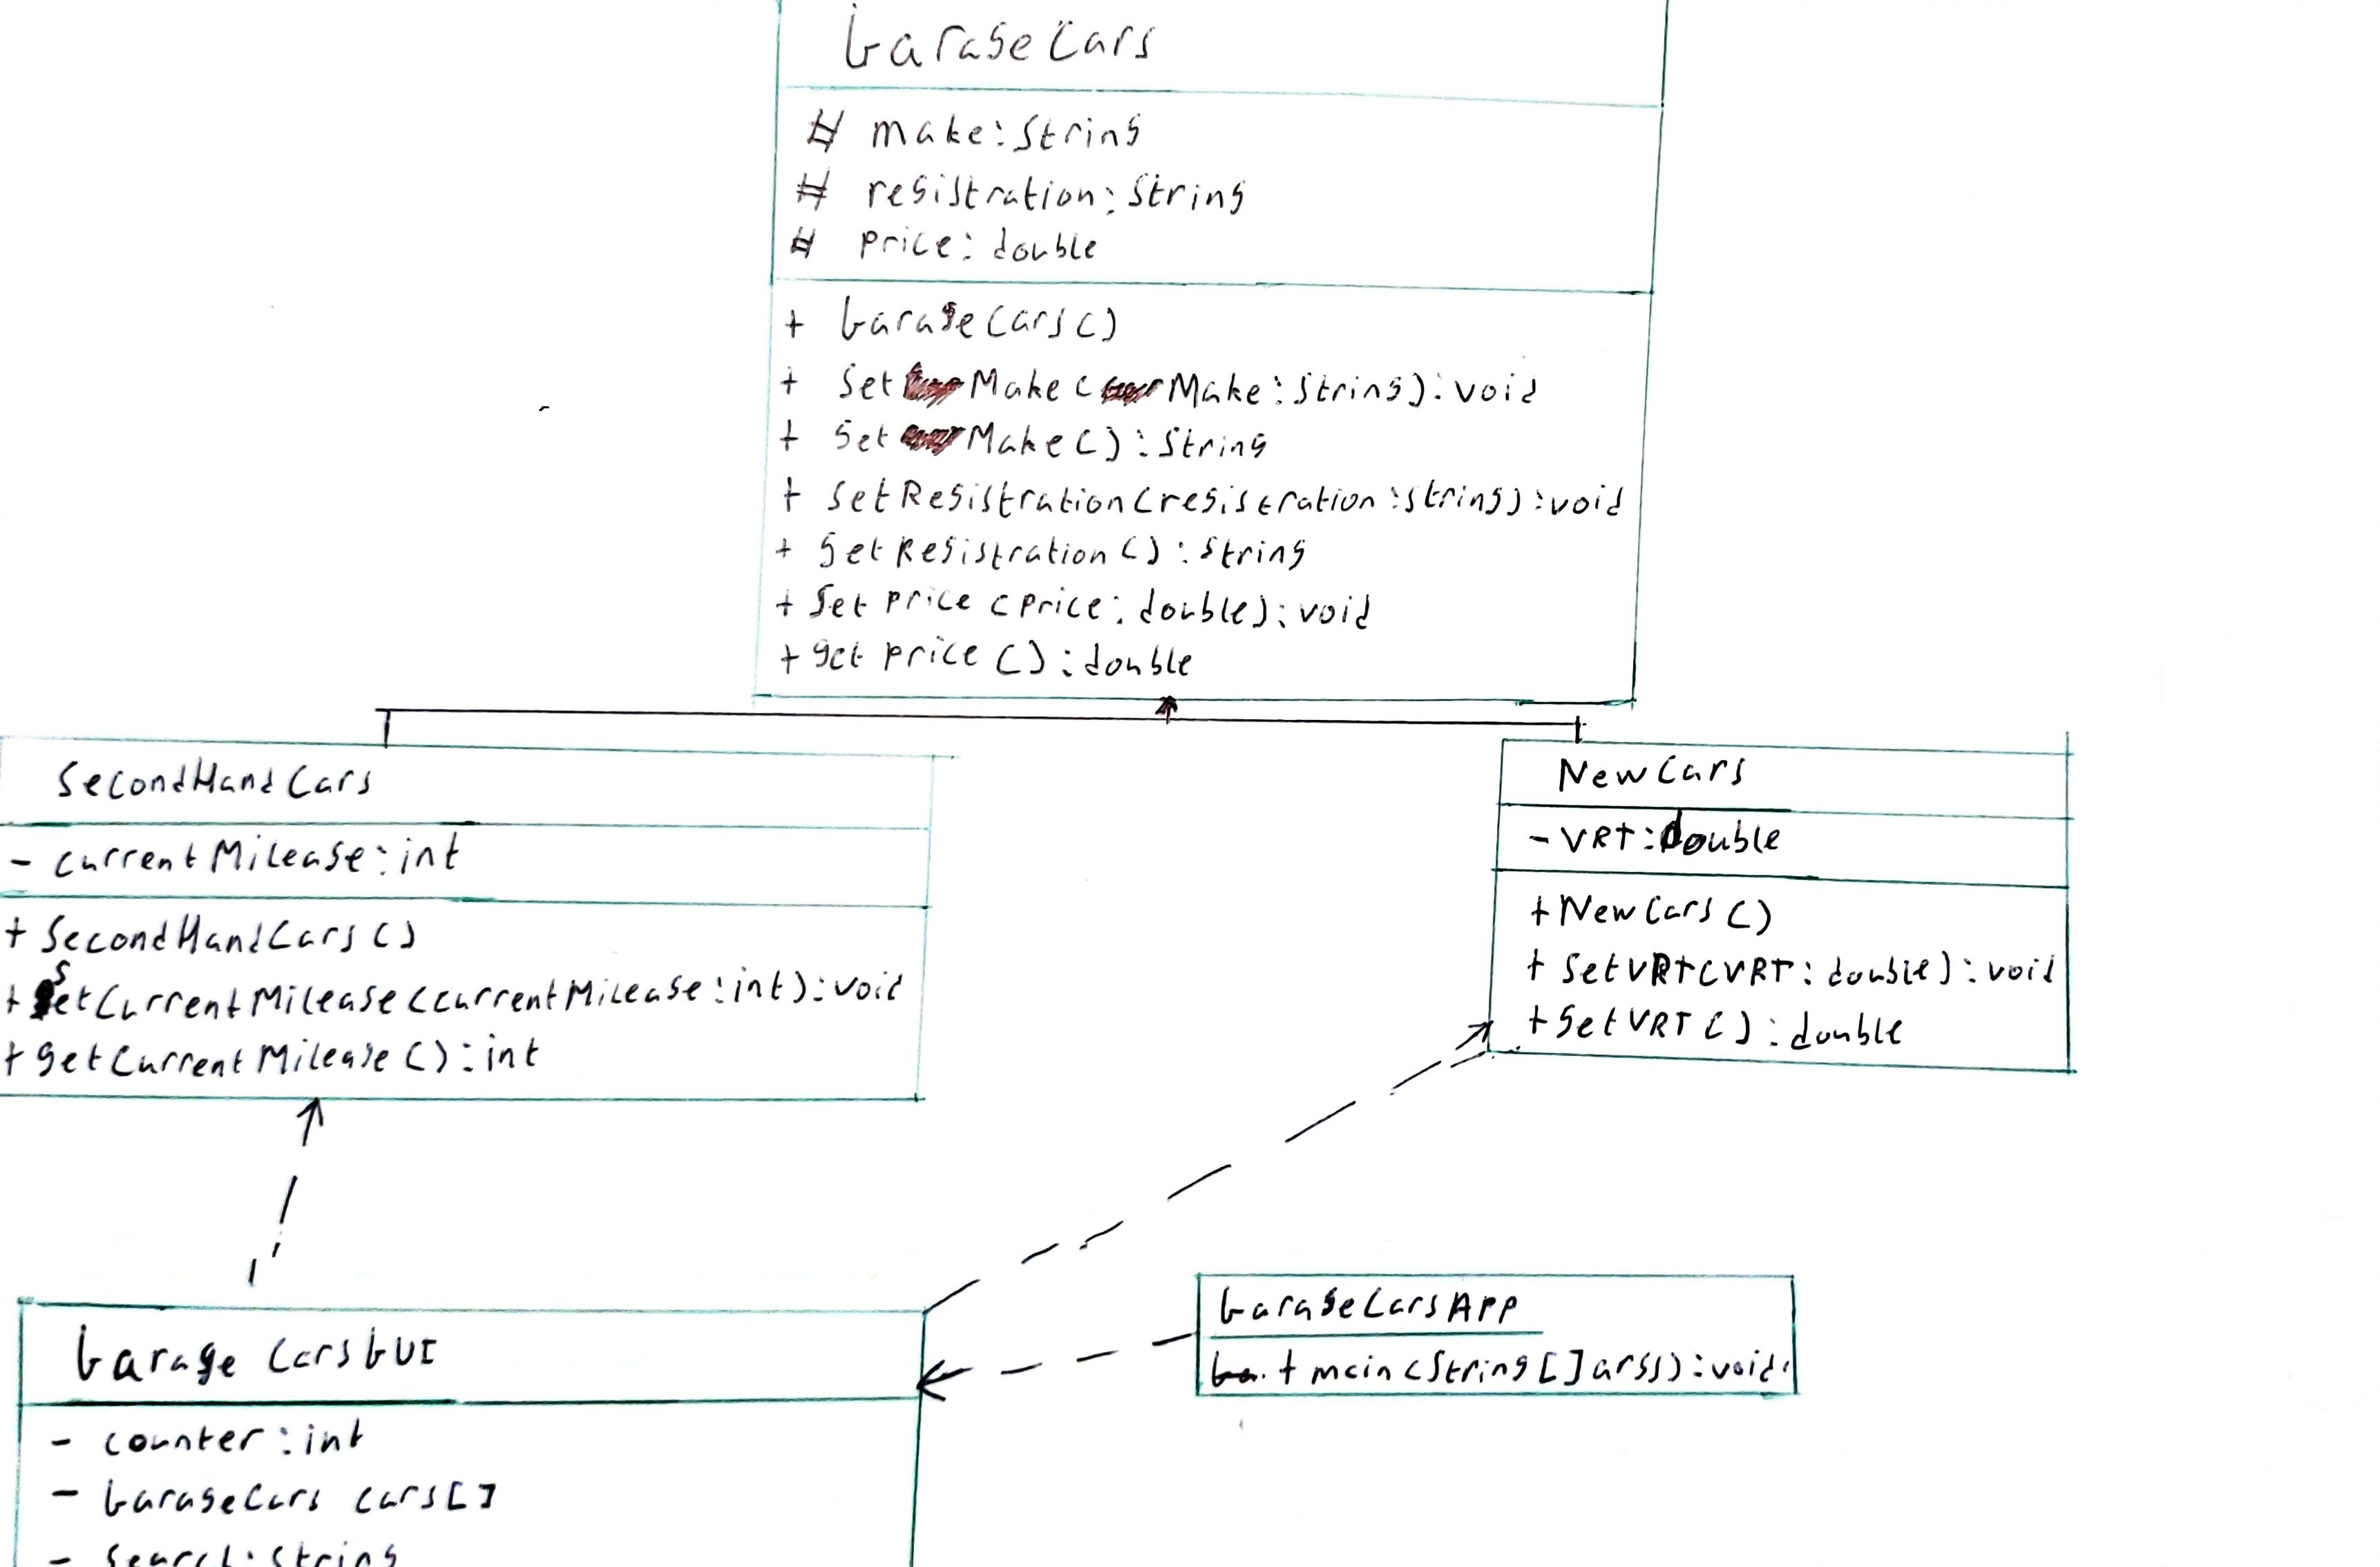 GarageCars
# make: String
# registration: String
# price: double
+ GarageCars()
+ set Make( Make: String): void
+ get Make(): String
+ setRegistration(registration: String): void
+ getRegistration(): String
+ set price (price: double): void
+ get price (): double
SecondHandCars
- currentMileage: int
+ SecondHandCars()
+ setCurrentMileage(currentMileage: int): void
+ getCurrentMileage(): int
NewCars
- VRT: double
+ NewCars()
+ setVRT(VRT: double): void
+ getVRT(): double
GarageCarsApp
+ main(String[] args): void
Garage CarsGUI
- counter: int
- GarageCars cars[]
- search: String